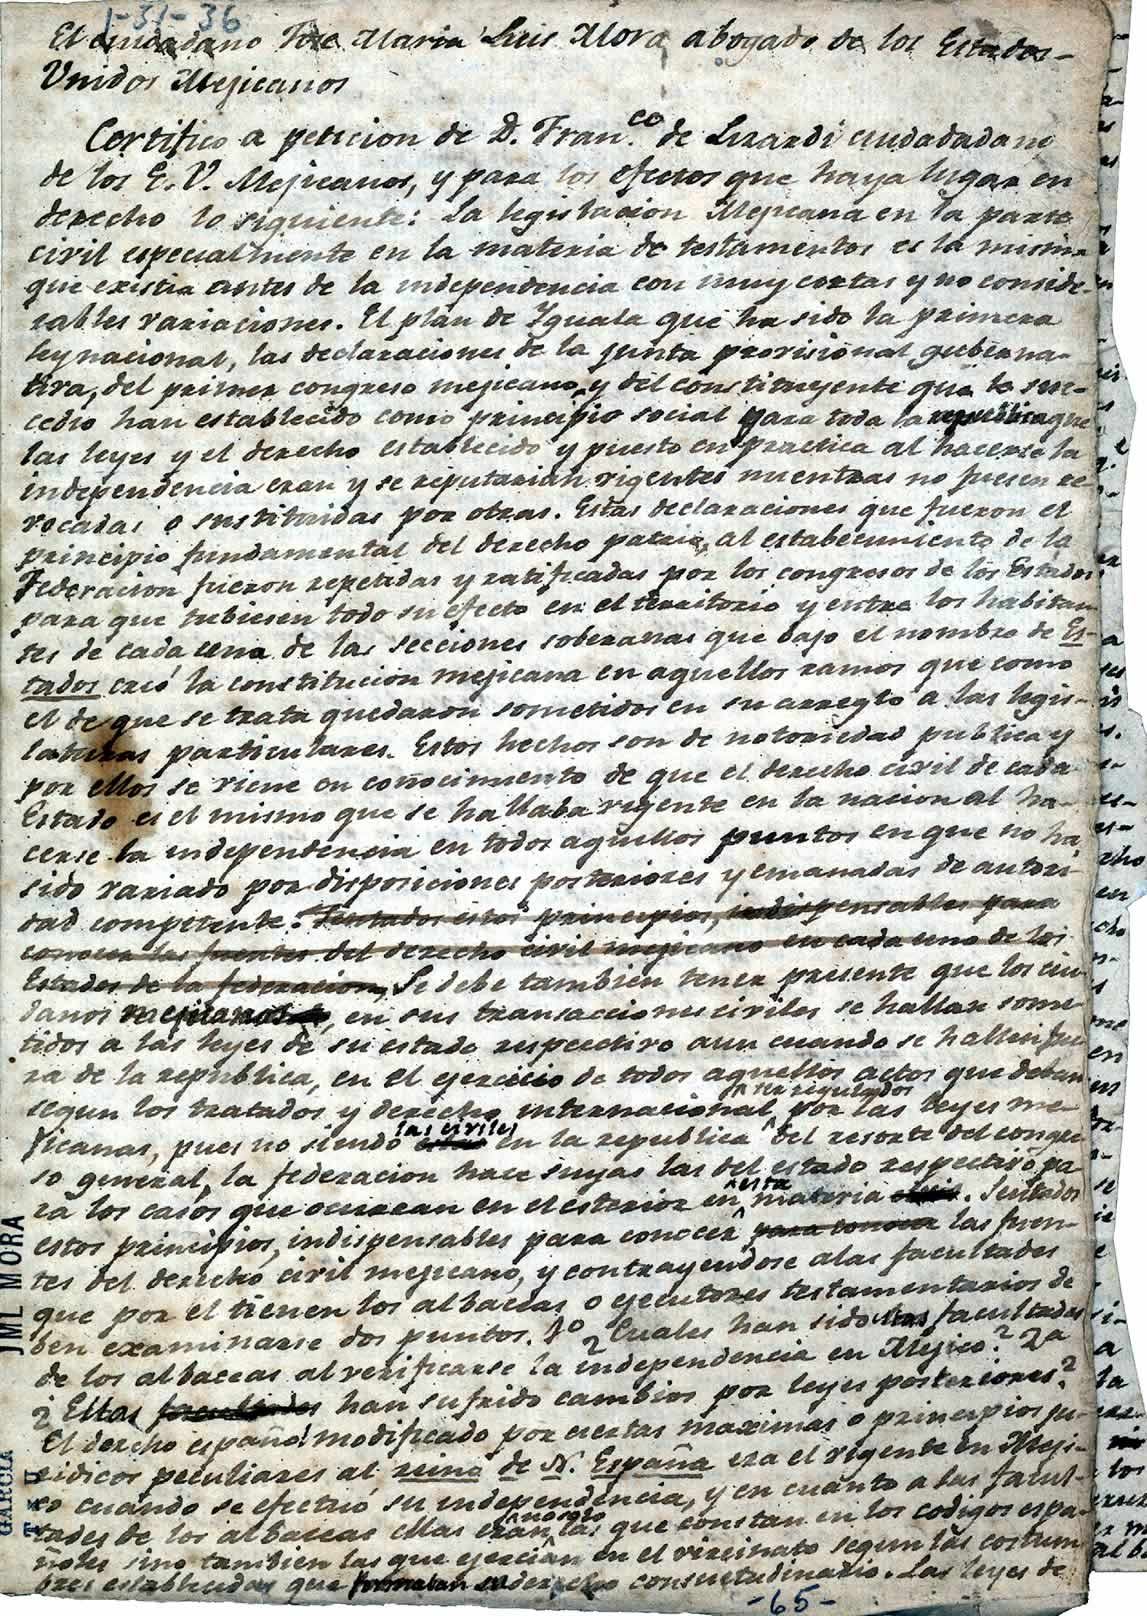 1-31-36
El ciudadano Jose Maria Luis Mora abogado de los Estados-
Unidos Mejicanos
Certifico a peticion de D. Fran.co de Lizardi ciudadadano
de los E. U. Mejicanos, y para los efectos que haya lugar en
derecho lo siguiente: La legislacion Mejicana en la parte
civil especialmente en la materia de testamentos es la misma
que existia antes de la independencia con muy cortas y no conside-
rables variaciones. El plan de Yguala que ha sido la primera
ley nacional, las declaraciones de la junta provisional guberna-
tiva, del primer congreso mejicano, y del constituyente que le suc-
cedio han establecido como principio social para toda la republica que
las leyes y el derecho establecido y puesto en practica al hacerse la
independencia eran y se reputarian vigentes mientras no fuesen re-
vocadas o sustituidas por otras. Estas declaraciones que fueron el
principio fundamental del derecho patrio, al establecimiento de la
Federacion fueron repetidas y ratificadas por los congresos de los Estados
para que tubiesen todo su efecto en el territorio y entre los habitan-
tes de cada una de las secciones soberanas que bajo el nombre de Es-
tados creó la constitucion mejicana en aquellos ramos que como
el de que se trata quedaron sometidos en su arreglo a las legis-
laturas particulares. Estos hechos son de notoriedad publica y
por ellos se viene en conocimiento de que el derecho civil de cada
Estado es el mismo que se hallaba vigente en la nacion al ha-
cerse la independencia en todos aquellos puntos en que no ha
sido variado por disposiciones posteriores y emanadas de autori-
dad competente. Sentados estos principios, indispensables para
conocer las fuentes del derecho civil mejicano en cada uno de los
Estados de la federacion, Se debe tambien tener presente que los ciu-
danos mejicanos, en sus transacciones civiles se hallan some-
tidos a las leyes de su estado respectivo aun cuando se hallen fue-
ra de la republica, en el ejercicio de todos aquellos actos que deban
ser regulados
segun los tratados y derecho internacional, por las leyes me-
las civiles
jicanas, pues no siendo en la republica del resorte del congre-
so general, la federacion hace suyas las del estado respectivo pa-
esta
ra los casos que ocurran en el esterior en materia. Sentados
estos principios, indispensables para conocer para conocer las fuen-
tes del derecho civil mejicano, y contrayendose a las facultades
que por el tienen los albaceas o ejecutores testamentarios de
ben examinarse dos puntos. 1º ¿Cuales han sido las facultades
de los albaceas al verificarse la independencia en Mejico? 2ª
¿Ellas facultades han sufrido cambios por leyes posteriores?
El derecho español modificado por ciertas maximas o principios ju-
ridicos peculiares al reino de N. España era el vigente en Meji-
co cuando se efectuó su independencia, y en cuanto a las facul-
no solo
tades de los albaceas ellas eran las que constan en los codigos espa-
ñoles sino tambien las que ejercian en el vireinato segun las costum
bres establecidas que formaban su derecho consuetudinario. Las leyes de
-65-
JML MORA
GARCIA